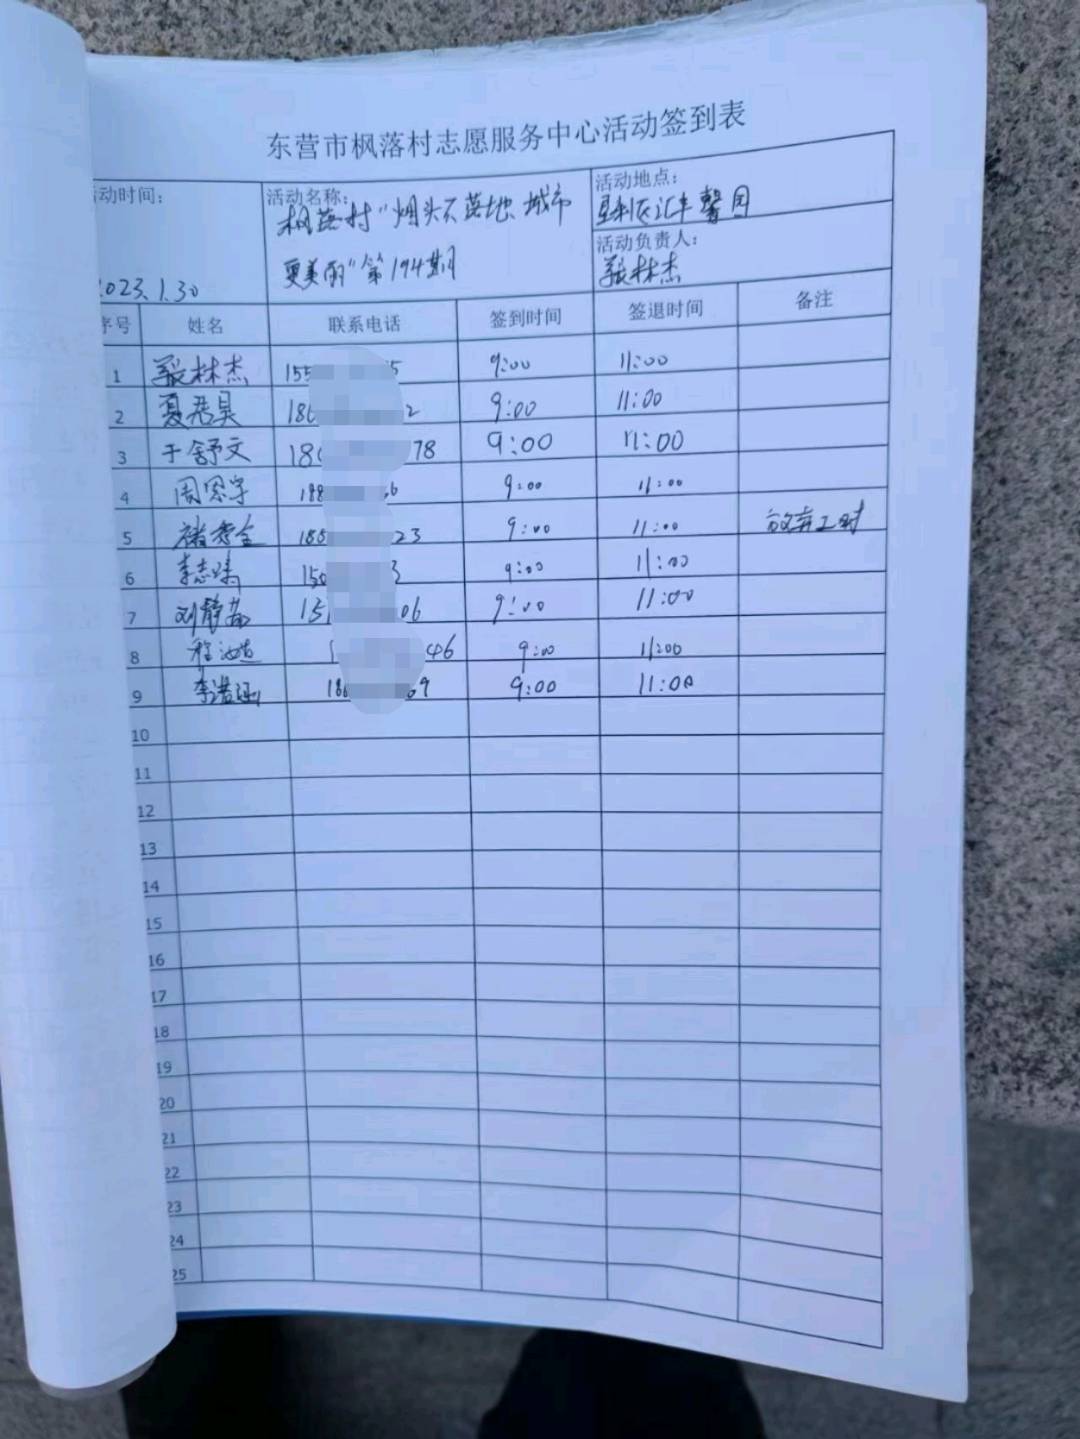 东营市枫落村志愿服务中心活动签到表
动时间: 活动名称: 枫落村"烟头不落地、城市 活动地点:
垦利区汇丰馨园
活动负责人:
023.1.30 更美丽"第194期 张林杰
序号 姓名 联系电话 签到时间 签退时间 备注
1 张林杰 155 5 9:00 11:00
2 夏君昊 18 2 9:00 11:00
3 于舒文 18 78 9:00 11:00
4 周恩宇 188 6 9:00 11:00
5 褚秀全 18 23 9:00 11:00 放弃工时
6 李志 150 3 9:00 11:00
7 刘静 15 06 9:00 11:00
8 程 1 46 9:00 11:00
9 李 18 69 9:00 11:00
10
11
12
13
14
15
16
17
18
19
20
21
22
23
24
25